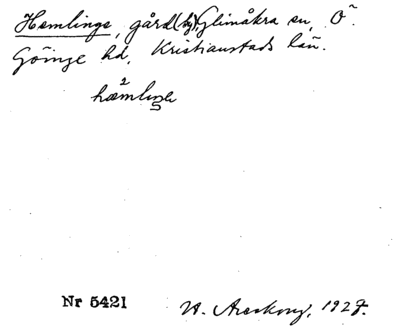 Hemlinge, gård (by), Glimåkra sn, Ö.
Göinge hd, Kristianstads län.
Nr 5421
W. Areskoug, 1927.